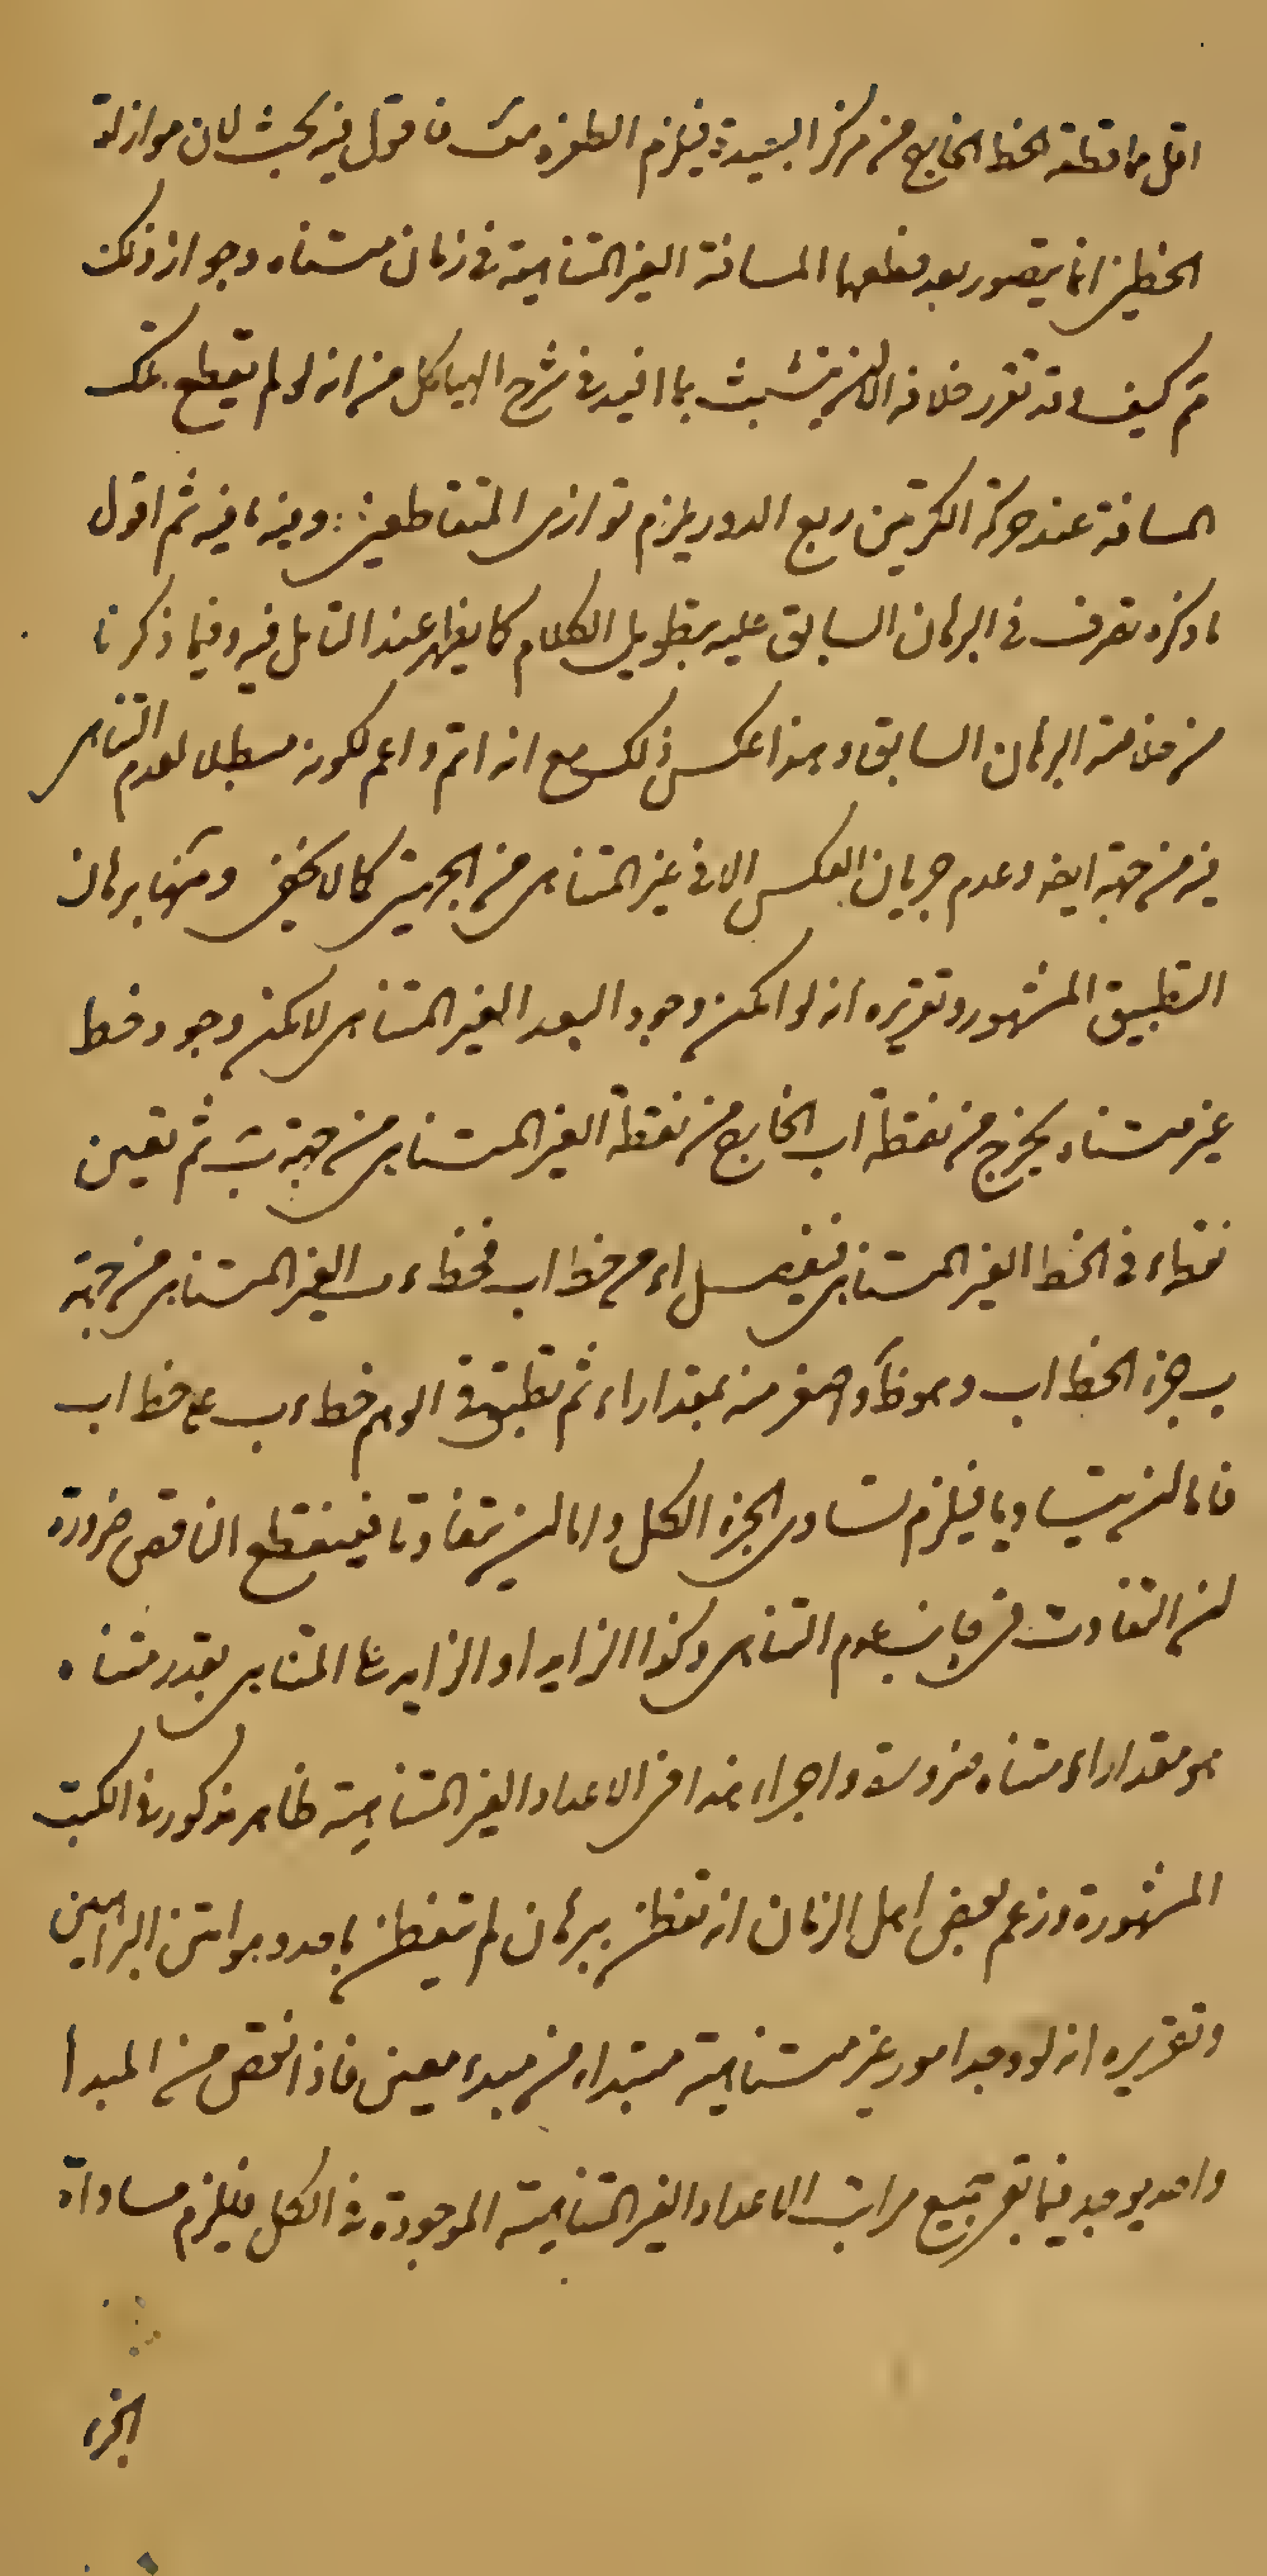 اقل مما قطعه الخط الخارج من مركز البعيدة فيلزم الطفره مت فاقول فيه بحث لان موازاة
الخطين انما يتصور بعد قطعهما المسافة الغير المتناهية في زمان متناه وجواز ذلك
ثم كيف وقد تقرر خلافه الا ان يتشبث بما افيد في شرح الهياكل من انه لو لم يقطع تلك
المسافة عند حركة الكرتين ربع الدور يلزم توازى المتقاطعين وفيه ما فيه ثم اقول
ما ذكره تصرف في البرهان السابق عليه بتطويل الكلام كما يظهر عند التامل فيه وفيما ذكرنا
من خلاصة البرهان السابق وهذا عكس ذلك مع انه اتم واعم لكونه مبطلا لعدم التناهى
فيه من جهة ايضه وعدم جريان العكس الا في غير المتناهى من الجهتين كما لا يخفى ومنها برهان
التطبيق المشهور وتقريره انه لو امكن وجود البعد الغير المتناهى لامكن وجود خط
غير متناه يخرج من نقطة اب الخارج من نقطة ا الغير المتناهى من جهة ب ثم نعين
نقطة ء في الخط الغير المتناهى فيفصل اء من خط اب فخط ء ب الغير المتناهى من جهة
ب جزء الخط اب وهو خط واصغر منه بمقدار اء ثم نطبق في الوهم خط ء ب على خط اب
فاما ان يتساويا فيلزم تساوى الجزء الكل واما ان يتفاوتا فينقطع الناقص ضرورة
ان التفاوت في جانب عدم التناهى وكذا الزايد اذ الزايد على المتناهى بقدر متناه
هو مقدار اء متناه ضرورة واجراء هذا في الاعداد الغير المتناهية ظاهر مذكور في الكتب
المشهورة وزعم بعض اهل الزمان انه تفطن ببرهان لم يتفطن به احد وهو امتن البراهين
وتقريره انه لو وجد امور غير متناهية مبتداه من مبدء معين فاذا نقص من المبدا
واحد يوجد فيما بقى جميع مراتب الاعداد الغير المتناهية الموجودة في الكل فيلزم مساواة
الجزء